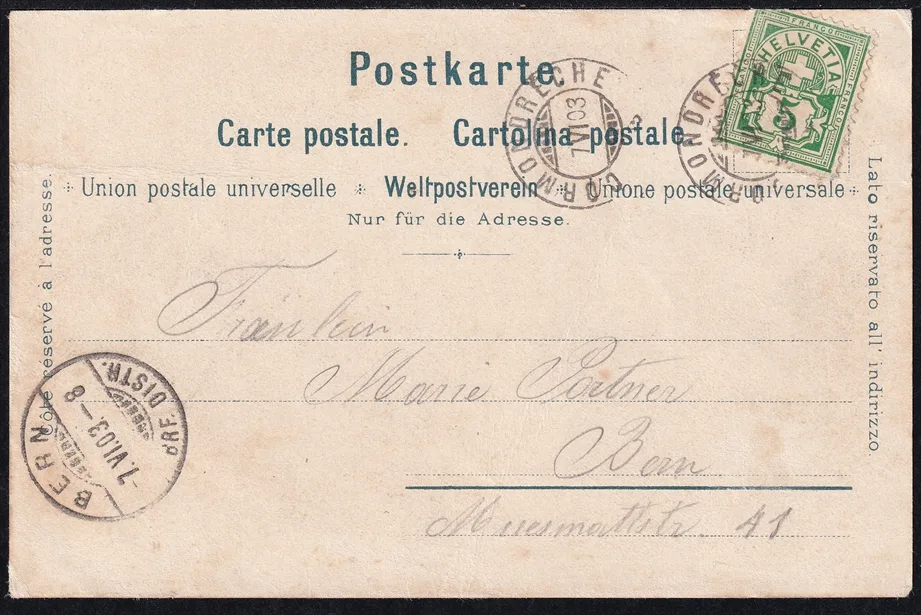 Postkarte
Carte postale. Cartolina postale.
Union postale universelle Weltpostverein Unione postale universale
Nur für die Adresse.
Côté réservé à l'adresse.
Lato riservato all' indirizzo
FRANCO
HELVETIA
FRANCO
5
CORMONDRECHE
7.VI.03
CORMONDRE
Fräulein
Marie Portner
Bern
Muesmattstr. 41
BERN
BRF. DISTR.
-7.VI.03.-8